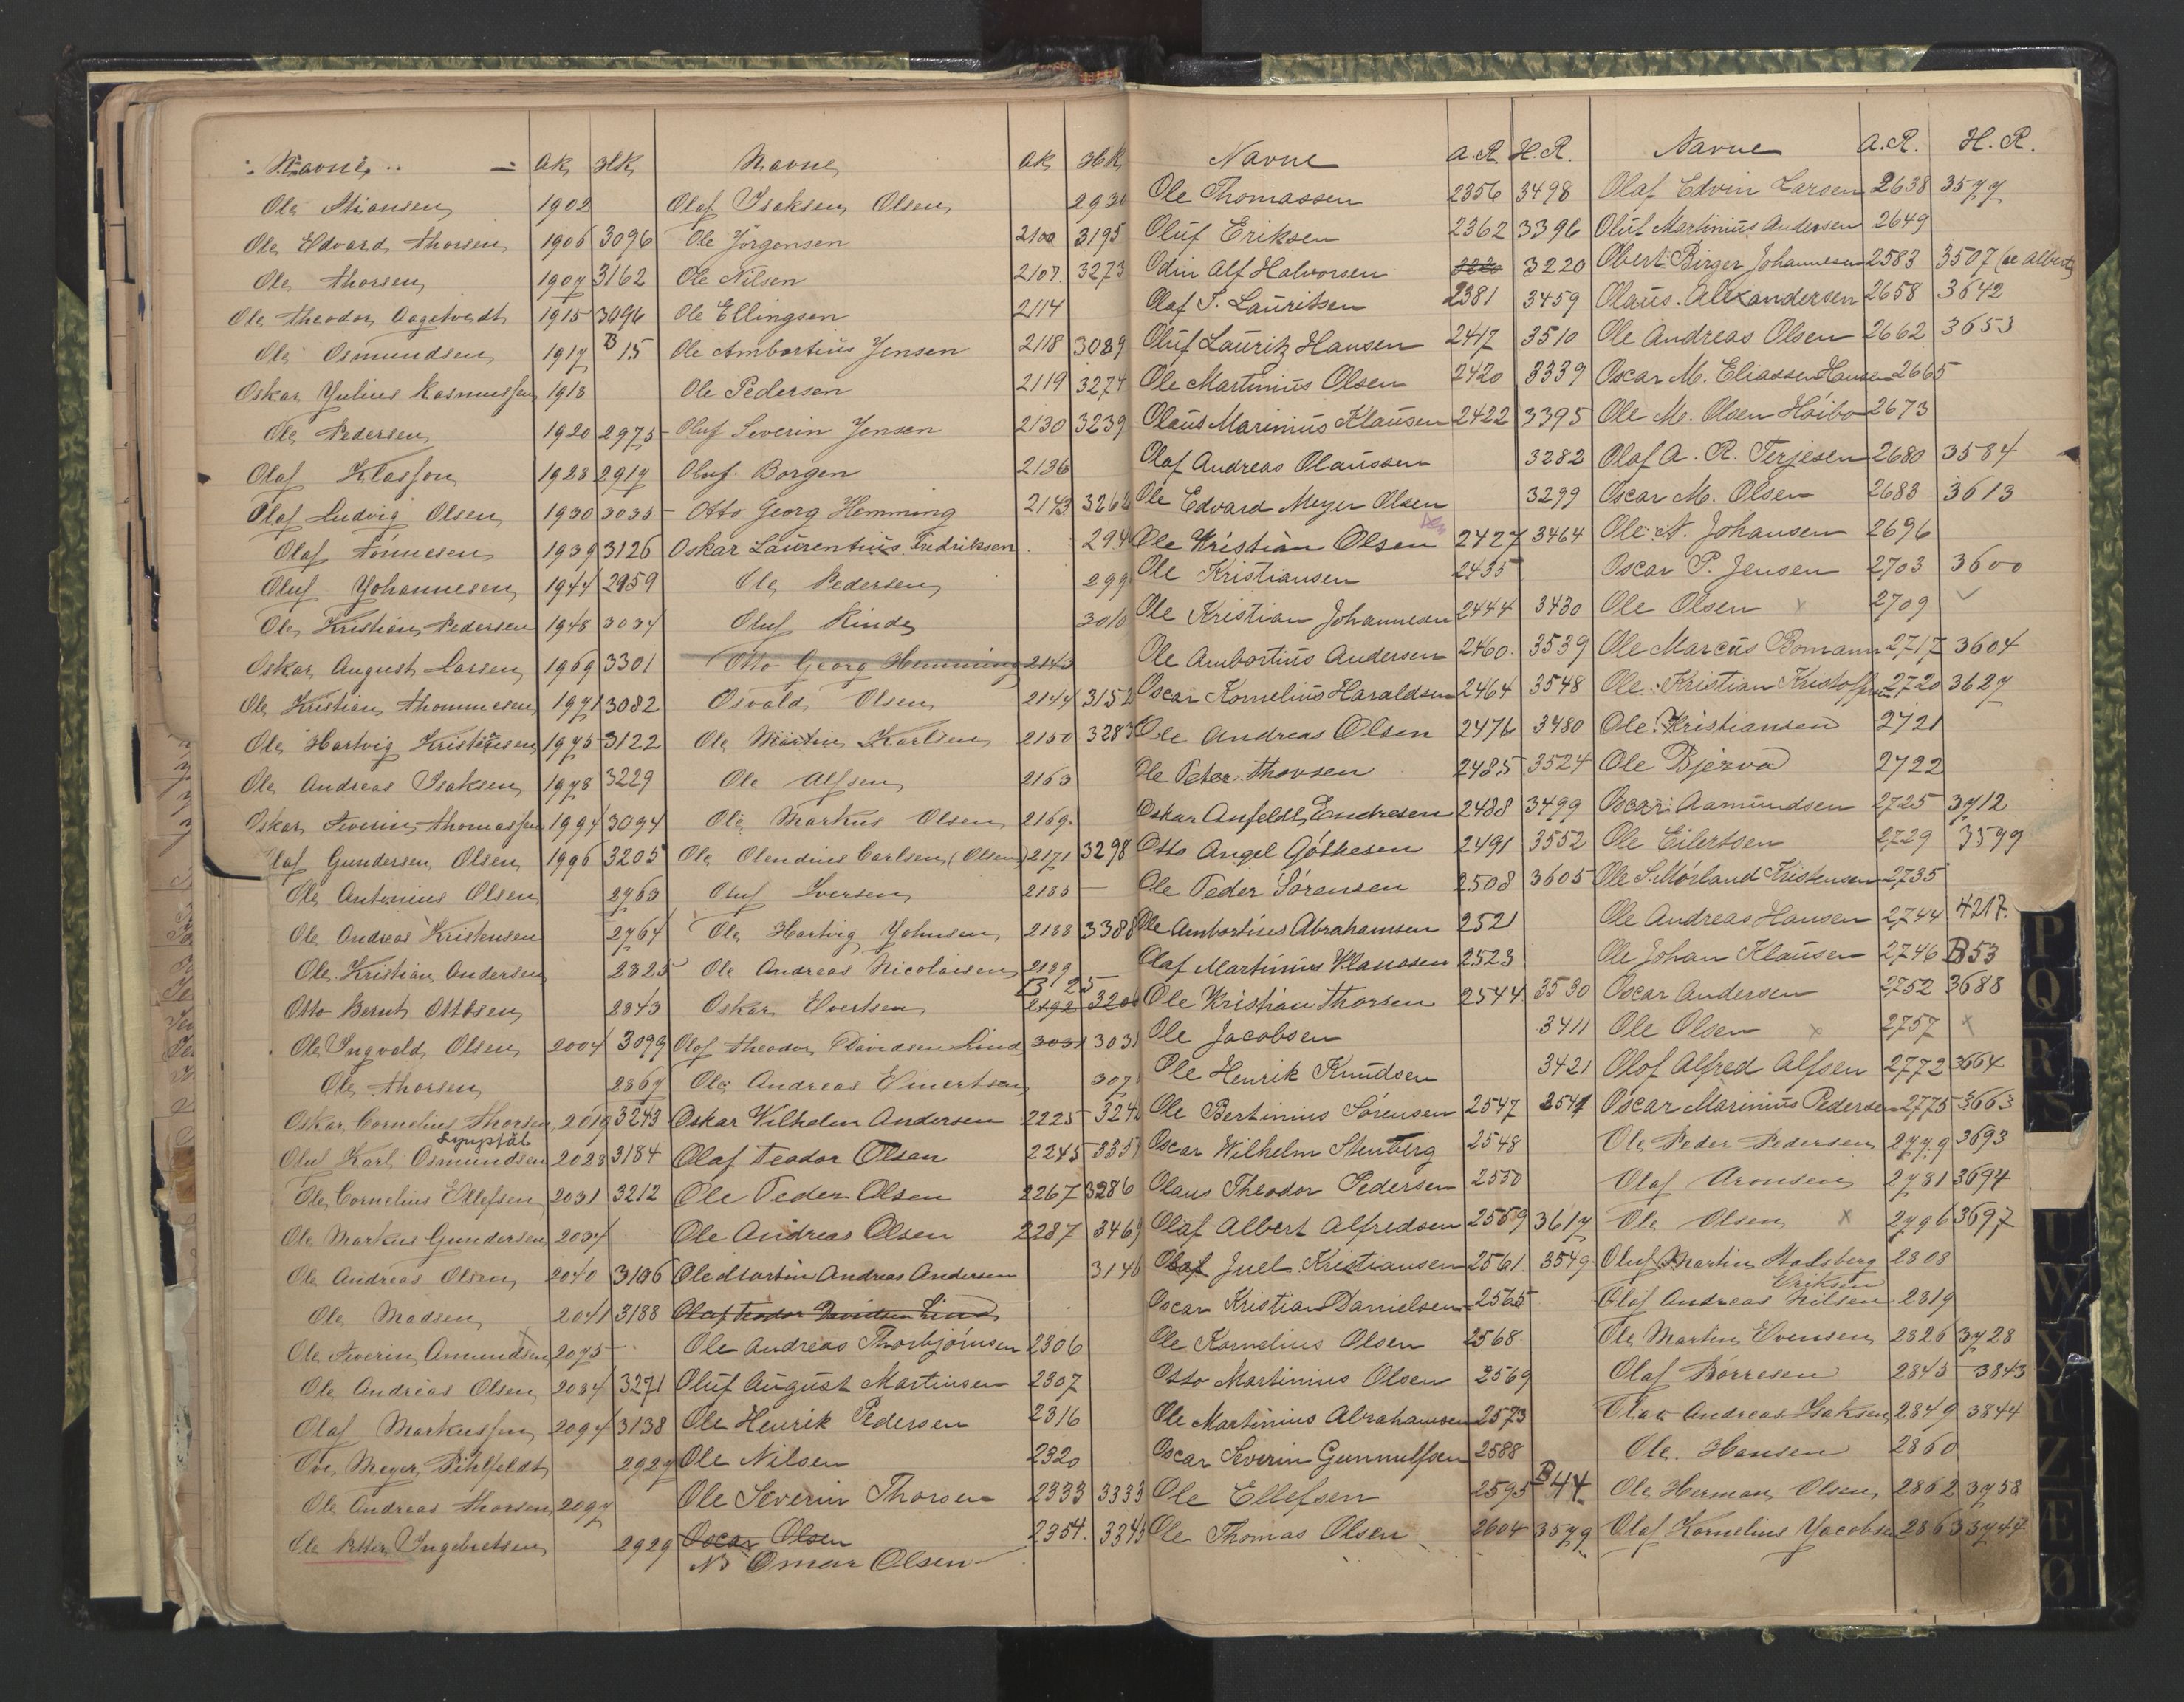 Navne AR HR
Ole Stiansen 1902
Ole Edvard Thorsen 1906 3096
Ole Thorsen 1907 3162
Ole Theodor Aagetvedt 1915 3096
Ole Osmundsen 1917 B 15
Oskar Julius Rasmussen 1918
Ole Pedersen 1920 2975
Olaf Klassen 1928 2917
Olaf Ludvig Olsen 1930 3035
Olaf Tönnesen 1939 3126
Oluf Johannesen 1944 2959
Ole Kristian Pedersen 1948 3034
Oskar August Larsen 1969 3301
Ole Kristian Thommesen 1971 3082
Ole Hartvig Kristensen 1975 3122
Ole Andreas Isaksen 1978 3229
Oskar Severin Thomassen 1994 3094
Olaf Gundersen Olsen 1996 3205
Ole Antonius Olsen 2763
Ole Andreas Kristensen 2764
Ole Kristian Andersen 2825
Otto Bernt Ottosen 2843
Ole Ingvald Olsen 2004 3099
Ole Thorsen 2869
Oskar Cornelius Thorsen 2019 3243
Lyngdal
Oluf Karl Osmundsen 2028 3184
Ole Cornelius Ellefsen 2031 3212
Ole Markus Gundersen 2034
Ole Andreas Olsen 2040 3106
Ole Madsen 2041 3188
Ole Severin Amundsen 2075
Ole Andreas Olsen 2084 3271
Olaf Markussen 2094 3138
Ove Meyer Pihlfeldt 2927
Ole Andreas Thorsen 2097
Ole Petter Ingebretsen 2929
Navne AR HR
Olaf Isaksen Olsen 2930
Ole Jörgensen 2100 3195
Ole Nilsen 2107. 3273
Ole Ellingsen 2114
Ole Ambortius Jensen 2118 3089
Ole Pedersen 2119 3274
Oluf Severin Jensen 2130 3239
Oluf Borgen 2136
Otto Georg Hemming 2143 3262
Oskar Laurentius Fredriksen 294
Ole Pedersen 299
Oluf Rinde 3010
Otto Georg Hemming 2143
Osvald Olsen 2144 3152
Ole Martin Karlsen 2150 3283
Ole Alfsen 2163
Ole Markus Olsen 2169.
Ole Olendius Carlsen (Olsen) 2171 3298
Oluf Iversen 2185 —
Ole Hartvig Johnsen 2188 3388
Ole Andreas Nicolaisen 2189
B 25
Oskar Evertsen 2192 320
Olaf Theodor Davidsen Lind 3031 3031
Ole Andreas Einertsen 307
Oskar Vilhelm Andersen 2225 324
Olaf Teodor Olsen 2245 335
Ole Peder Olsen 2267 3286
Ole Andreas Olsen 2287 3469
Ole Martin Andreas Andersen 3146
Olaf Teodor Davidsen Lind
Ole Andreas Thorbjörnsen 2306
Oluf August Martinsen 2307
Ole Henrik Pedersen 2316
Ole Nilsen 2320
Ole Severin Thorsen 2333 3333
Oscar Olsen 2354. 3343
NB Omar Olsen
Navne A.R. H.R.
Ole Thomassen 2356 3498
Oluf Eriksen 2362 3396
Odin Alf Halvorsen 3220 3220
Olaf T. Lauritsen 2381 3459
Oluf Lauritz Hansen 2417 3510
Ole Martinius Olsen 2420 3339
Olaus Marinius Klausen 2422 3395
Olaf Andreas Olaussen 3282
Ole Edvard Meyer Olsen 3299
Ole Kristian Olsen 2427 3464
Ole Kristiansen 2435
Ole Kristian Johannesen 2444 3430
Ole Ambortius Andersen 2460. 3539
Oscar Kornelius Haraldsen 2464 3548
Ole Andreas Olsen 2476 3480
Ole Peter Thorsen 2485 3524
Oskar Anfeldt Endresen 2488 3499
Otto Angel Göthesen 2491 3552
Ole Peder Sörensen 2508 3605
Ole Ambortius Abrahamsen 2521
Olaf Martinius Klaussen 2523
Ole Kristian Thorsen 2544 3530
Ole Jacobsen 3411
Ole Henrik Knudsen 3421
Ole Bertinius Sörensen 2547 2547
Oscar Wilhelm Stenberg 2548
Olaus Theodor Pedersen 2550
Olaf Albert Alfredsen 2559 3617
Olaf Juel Kristiansen 2561. 3549
Oscar Kristian Danielsen 2565
Ole Kornelius Olsen 2568
Otto Martinius Olsen 2569
Ole Martinius Abrahamsen 2573
Oscar Severin Gunnulfsen 2588
Ole Ellefsen 2595 B 44.
Ole Thomas Olsen 2604 3579
Navne A.R. H.R.
Olaf Edvin Larsen 2638 3577
Oluf Martinius Andersen 2649
Obert Birger Johannesen 2583 3507 (se Albert)
Olaus Alexandersen 2658 3642
Ole Andreas Olsen 2662 3653
Oscar M. Eliassen Hansen 2665
Ole M. Olsen Höibo 2673
Olaf A. R. Terjesen 2680 3584
Oscar M. Olsen 2683 3613
Ole N. Johansen 2696
Oscar P. Jensen 2703 3600
Ole Olsen x 2709
Ole Marcus Bomann 2717 3604
Ole Kristian Kristoffersen 2720 3627
Ole Kristiansen 2721
Ole Bjerva 2722
Oscar Aamundsen 2725 3712
Ole Eilertsen 2729 3599
Ole S. Mörland Kristensen 2735
Ole Andreas Hansen 2744 4217.
Ole Johan Klausen 2746 B53
Oscar Andersen 2752 3688
Ole Olsen x 2757 x
Olof Alfred Alfsen 2772 3664
Oscar Marinius Pedersen 2775 3663
Ole Peder Pedersen 2779 3693
Olaf Aronsen 2781 3694
Ole Olsen x 2796 3697
Oluf Martin Aalsberg 2808
Eriksen
Olaf Andreas Nilsen 2819
Ole Martin Evensen 2826 3728
Olaf Börresen 2845 3843
Olaf Andreas Isaksen 2849 3844
Ole Hansen 2860
Ole Herman Olsen 2862 3758
Olaf Kornelius Jacobsen 2863 3747
P
Q
R
S
U
W
X
Y
Z
Æ
Ø